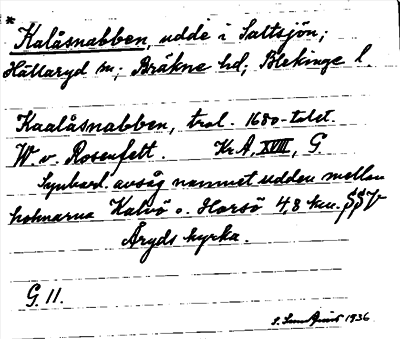 *
Kalåsnabben, udde i Saltsjön;
Hällaryd sn; Bräkne hd; Blekinge l.
Kaalåsnabben, trol. 1680-talet.
W. v. Rosenfelt. KrA, XVIII, G
Synbarl. avsåg namnet udden mellan
holmarna Kalvö o. Horsö 4,8 km. SSV
Åryds kyrka.
G. 11.
S. 1936